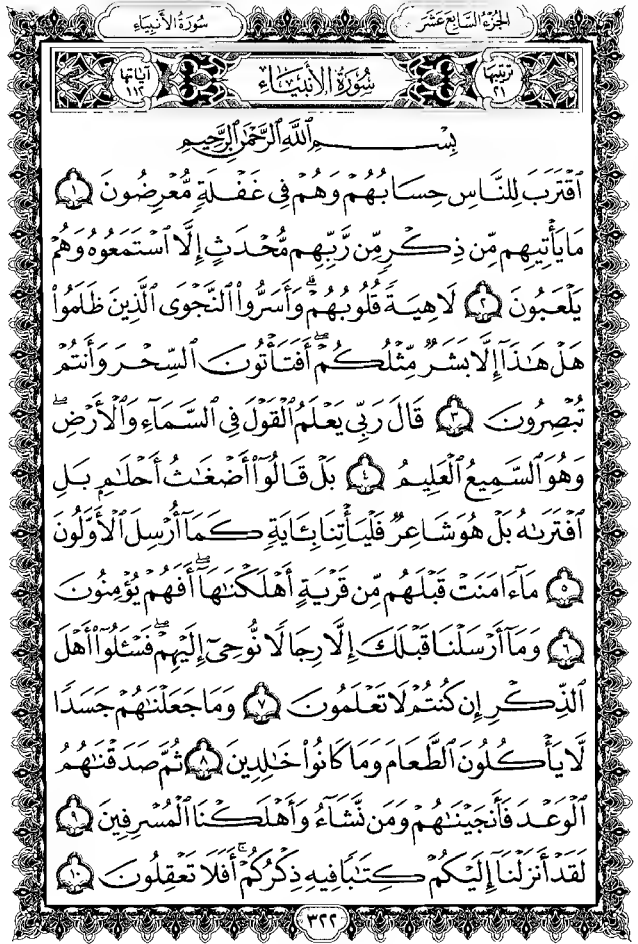 الجزء السابع عشر
سورة الأنبياء
ترتيبها ٢١
سُورَةُ الأَنبِيَاءِ
آياتها ١١٢
بِسْمِ ٱللَّهِ ٱلرَّحْمَٰنِ ٱلرَّحِيمِ
ٱقْتَرَبَ لِلنَّاسِ حِسَابُهُمْ وَهُمْ فِي غَفْلَةٍ مُّعْرِضُونَ ١
مَا يَأْتِيهِم مِّن ذِكْرٍ مِّن رَّبِّهِم مُّحْدَثٍ إِلَّا ٱسْتَمَعُوهُ وَهُمْ
يَلْعَبُونَ ٢ لَاهِيَةً قُلُوبُهُمْ ۗ وَأَسَرُّوا۟ ٱلنَّجْوَى ٱلَّذِينَ ظَلَمُوا۟
هَلْ هَٰذَآ إِلَّا بَشَرٌ مِّثْلُكُمْ ۖ أَفَتَأْتُونَ ٱلسِّحْرَ وَأَنتُمْ
تُبْصِرُونَ ٣ قَالَ رَبِّي يَعْلَمُ ٱلْقَوْلَ فِي ٱلسَّمَآءِ وَٱلْأَرْضِ ۖ
وَهُوَ ٱلسَّمِيعُ ٱلْعَلِيمُ ٤ بَلْ قَالُوٓا۟ أَضْغَٰثُ أَحْلَٰمٍۭ بَلِ
ٱفْتَرَىٰهُ بَلْ هُوَ شَاعِرٌ فَلْيَأْتِنَا بِـَٔايَةٍ كَمَآ أُرْسِلَ ٱلْأَوَّلُونَ
٥ مَآ ءَامَنَتْ قَبْلَهُم مِّن قَرْيَةٍ أَهْلَكْنَٰهَآ ۖ أَفَهُمْ يُؤْمِنُونَ
٦ وَمَآ أَرْسَلْنَا قَبْلَكَ إِلَّا رِجَالًا نُّوحِىٓ إِلَيْهِمْ ۖ فَسْـَٔلُوٓا۟ أَهْلَ
ٱلذِّكْرِ إِن كُنتُمْ لَا تَعْلَمُونَ ٧ وَمَا جَعَلْنَٰهُمْ جَسَدًا
لَّا يَأْكُلُونَ ٱلطَّعَامَ وَمَا كَانُوا۟ خَٰلِدِينَ ٨ ثُمَّ صَدَقْنَٰهُمُ
ٱلْوَعْدَ فَأَنجَيْنَٰهُمْ وَمَن نَّشَآءُ وَأَهْلَكْنَا ٱلْمُسْرِفِينَ ٩
لَقَدْ أَنزَلْنَآ إِلَيْكُمْ كِتَٰبًا فِيهِ ذِكْرُكُمْ ۖ أَفَلَا تَعْقِلُونَ ١٠
٣٢٢